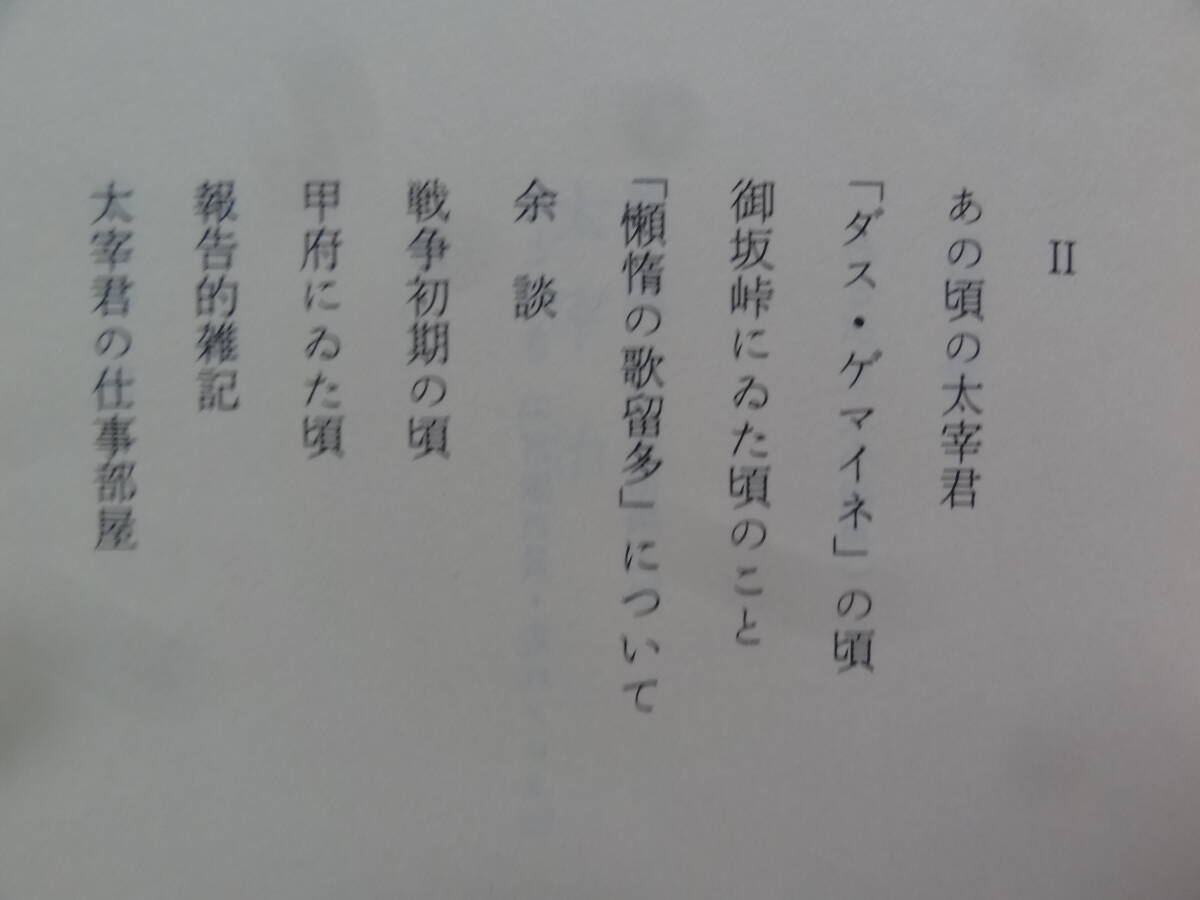 II
あの頃の太宰君
「ダス・ゲマイネ」の頃
御坂峠にゐた頃のこと
「懶惰の歌留多」について
余談
戦争初期の頃
甲府にゐた頃
報告的雑記
太宰君の仕事部屋